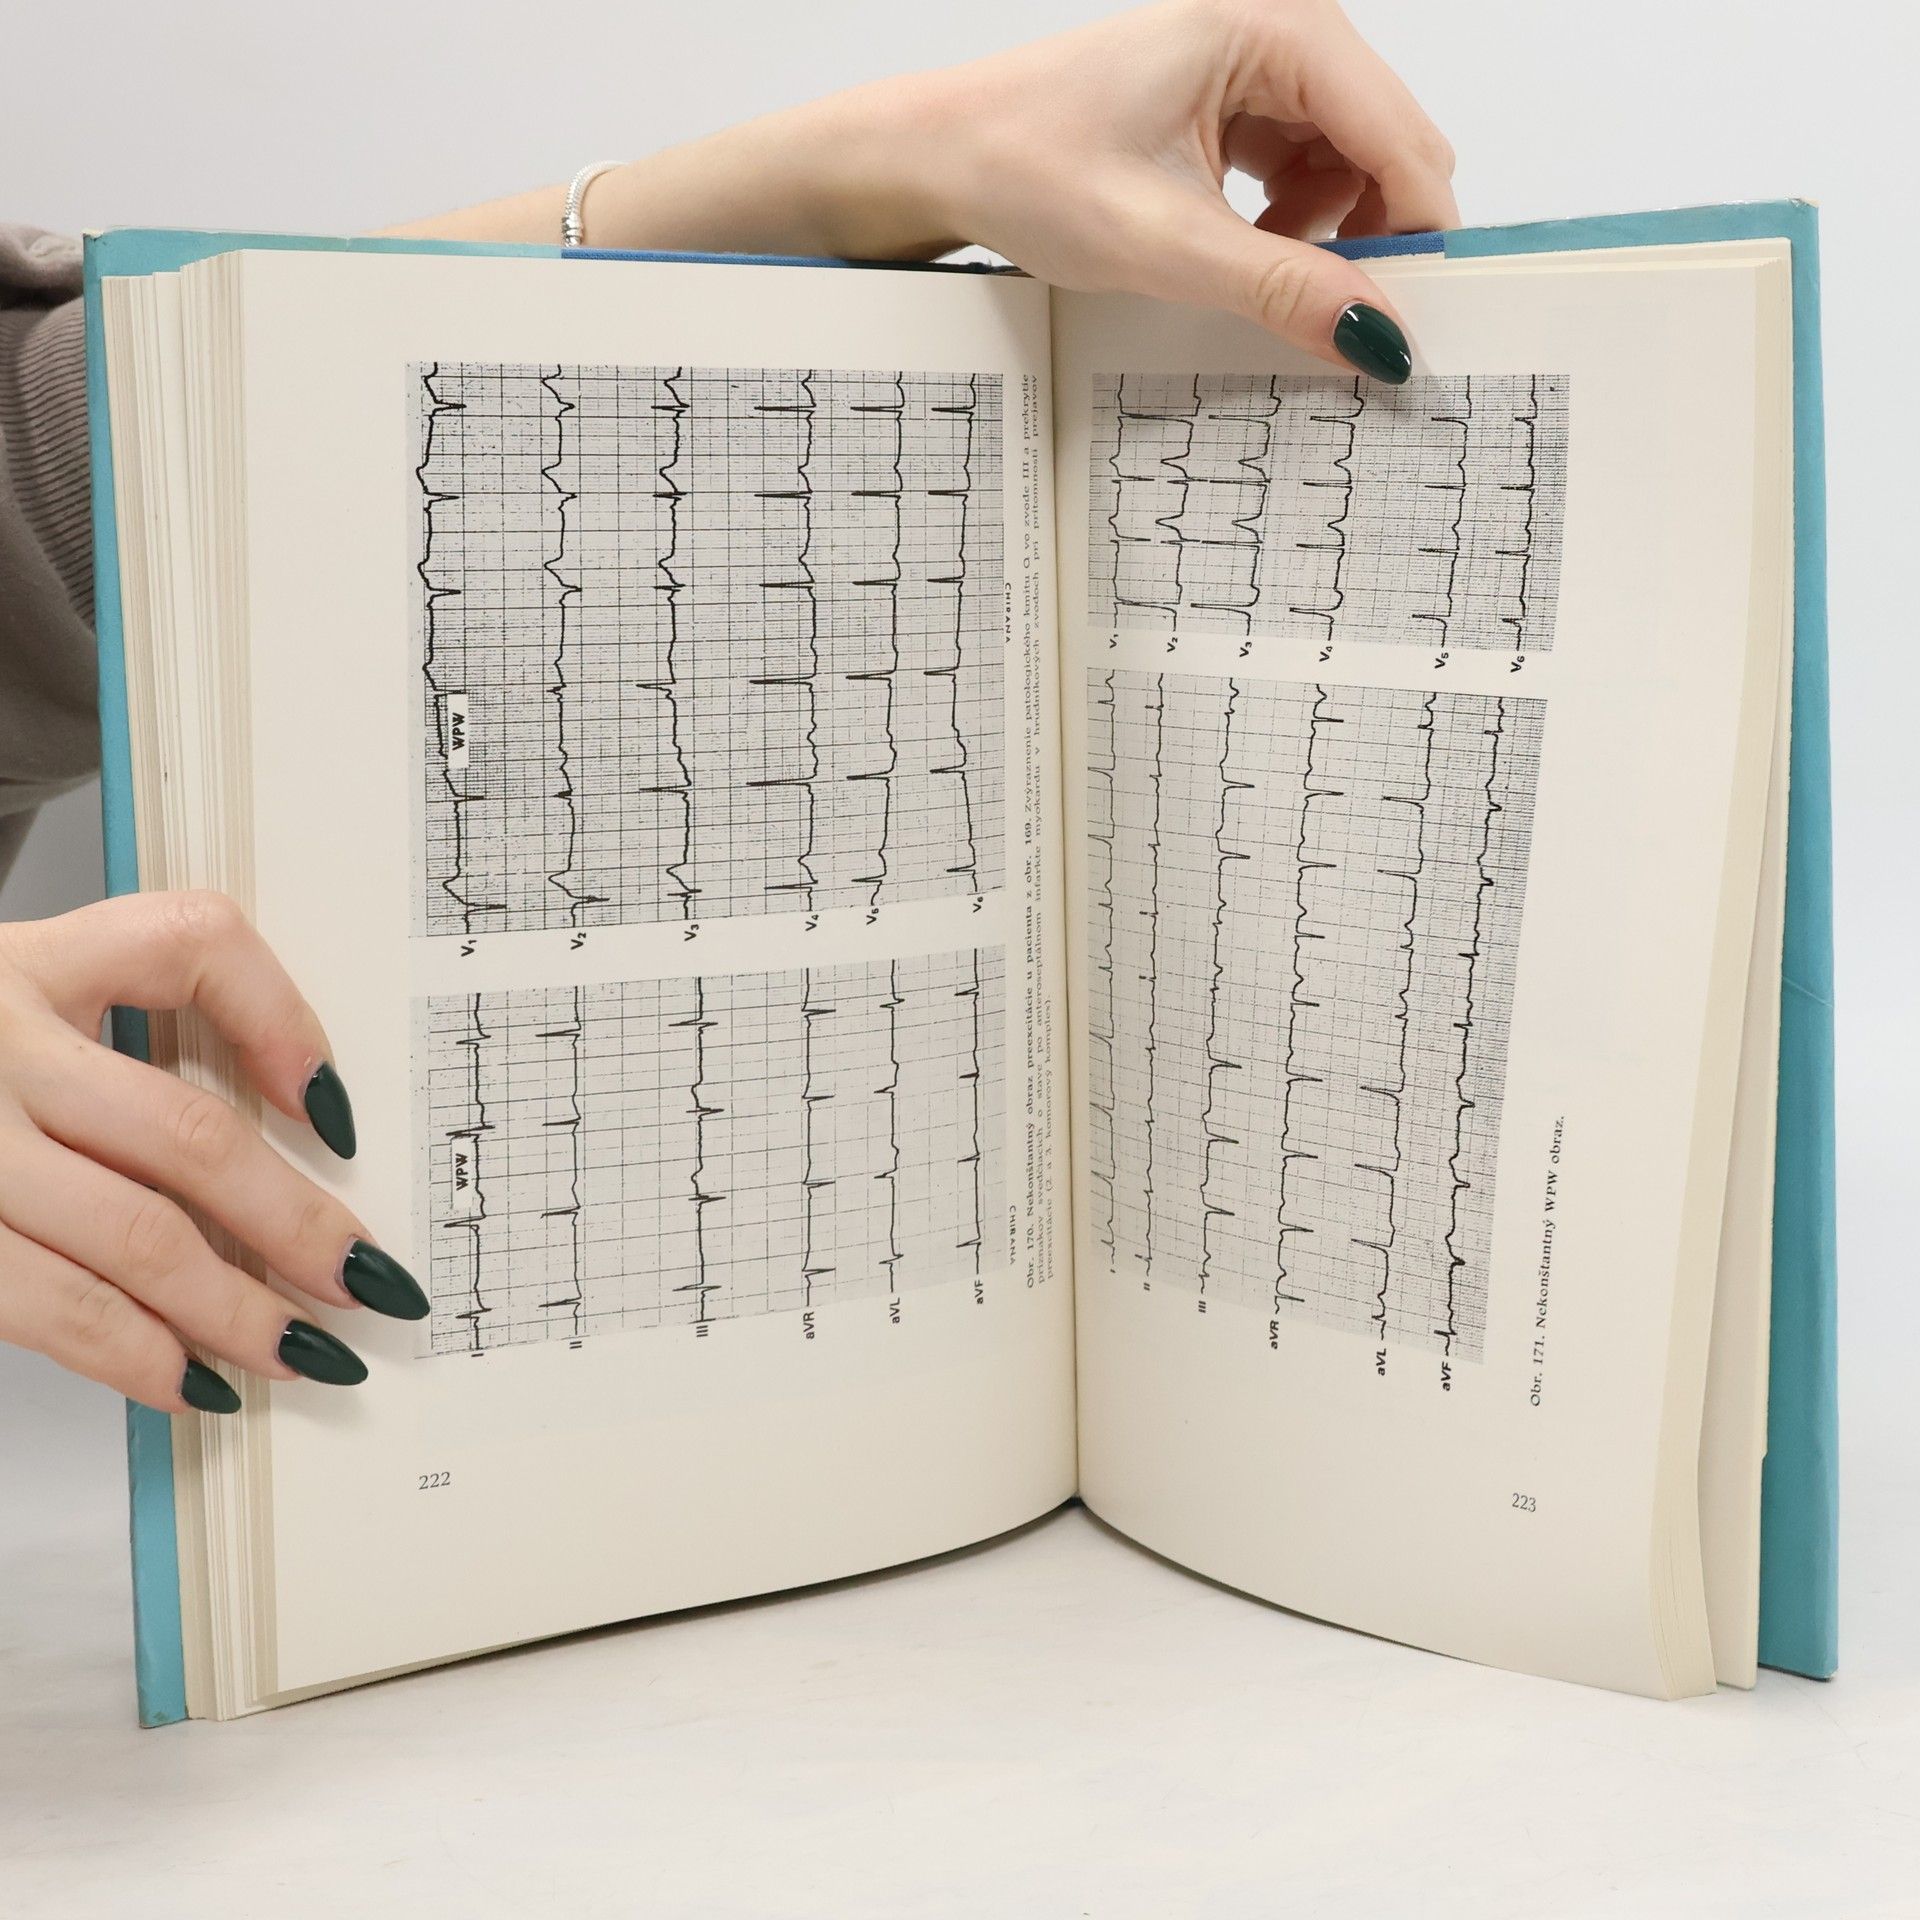 WPW
V1
V2
V3
V4
V5
V6
CHIRANA
WPW
I
II
III
aVR
aVL
aVF
CHIRANA
Obr. 170. Nekonštantný obraz preexcitácie u pacienta z obr. 169. Zvýraznenie patologického kmitu Q vo zvode III a prekrytie
príznakov svedčiacich o stave po anteroseptálnom infarkte myokardu v hrudníkových zvodoch pri prítomnosti prejavov
preexcitácie (2. a 3. komorový komplex).
222
V1
V2
V3
V4
V5
V6
I
II
III
aVR
aVL
aVF
Obr. 171. Nekonštantný WPW obraz.
223